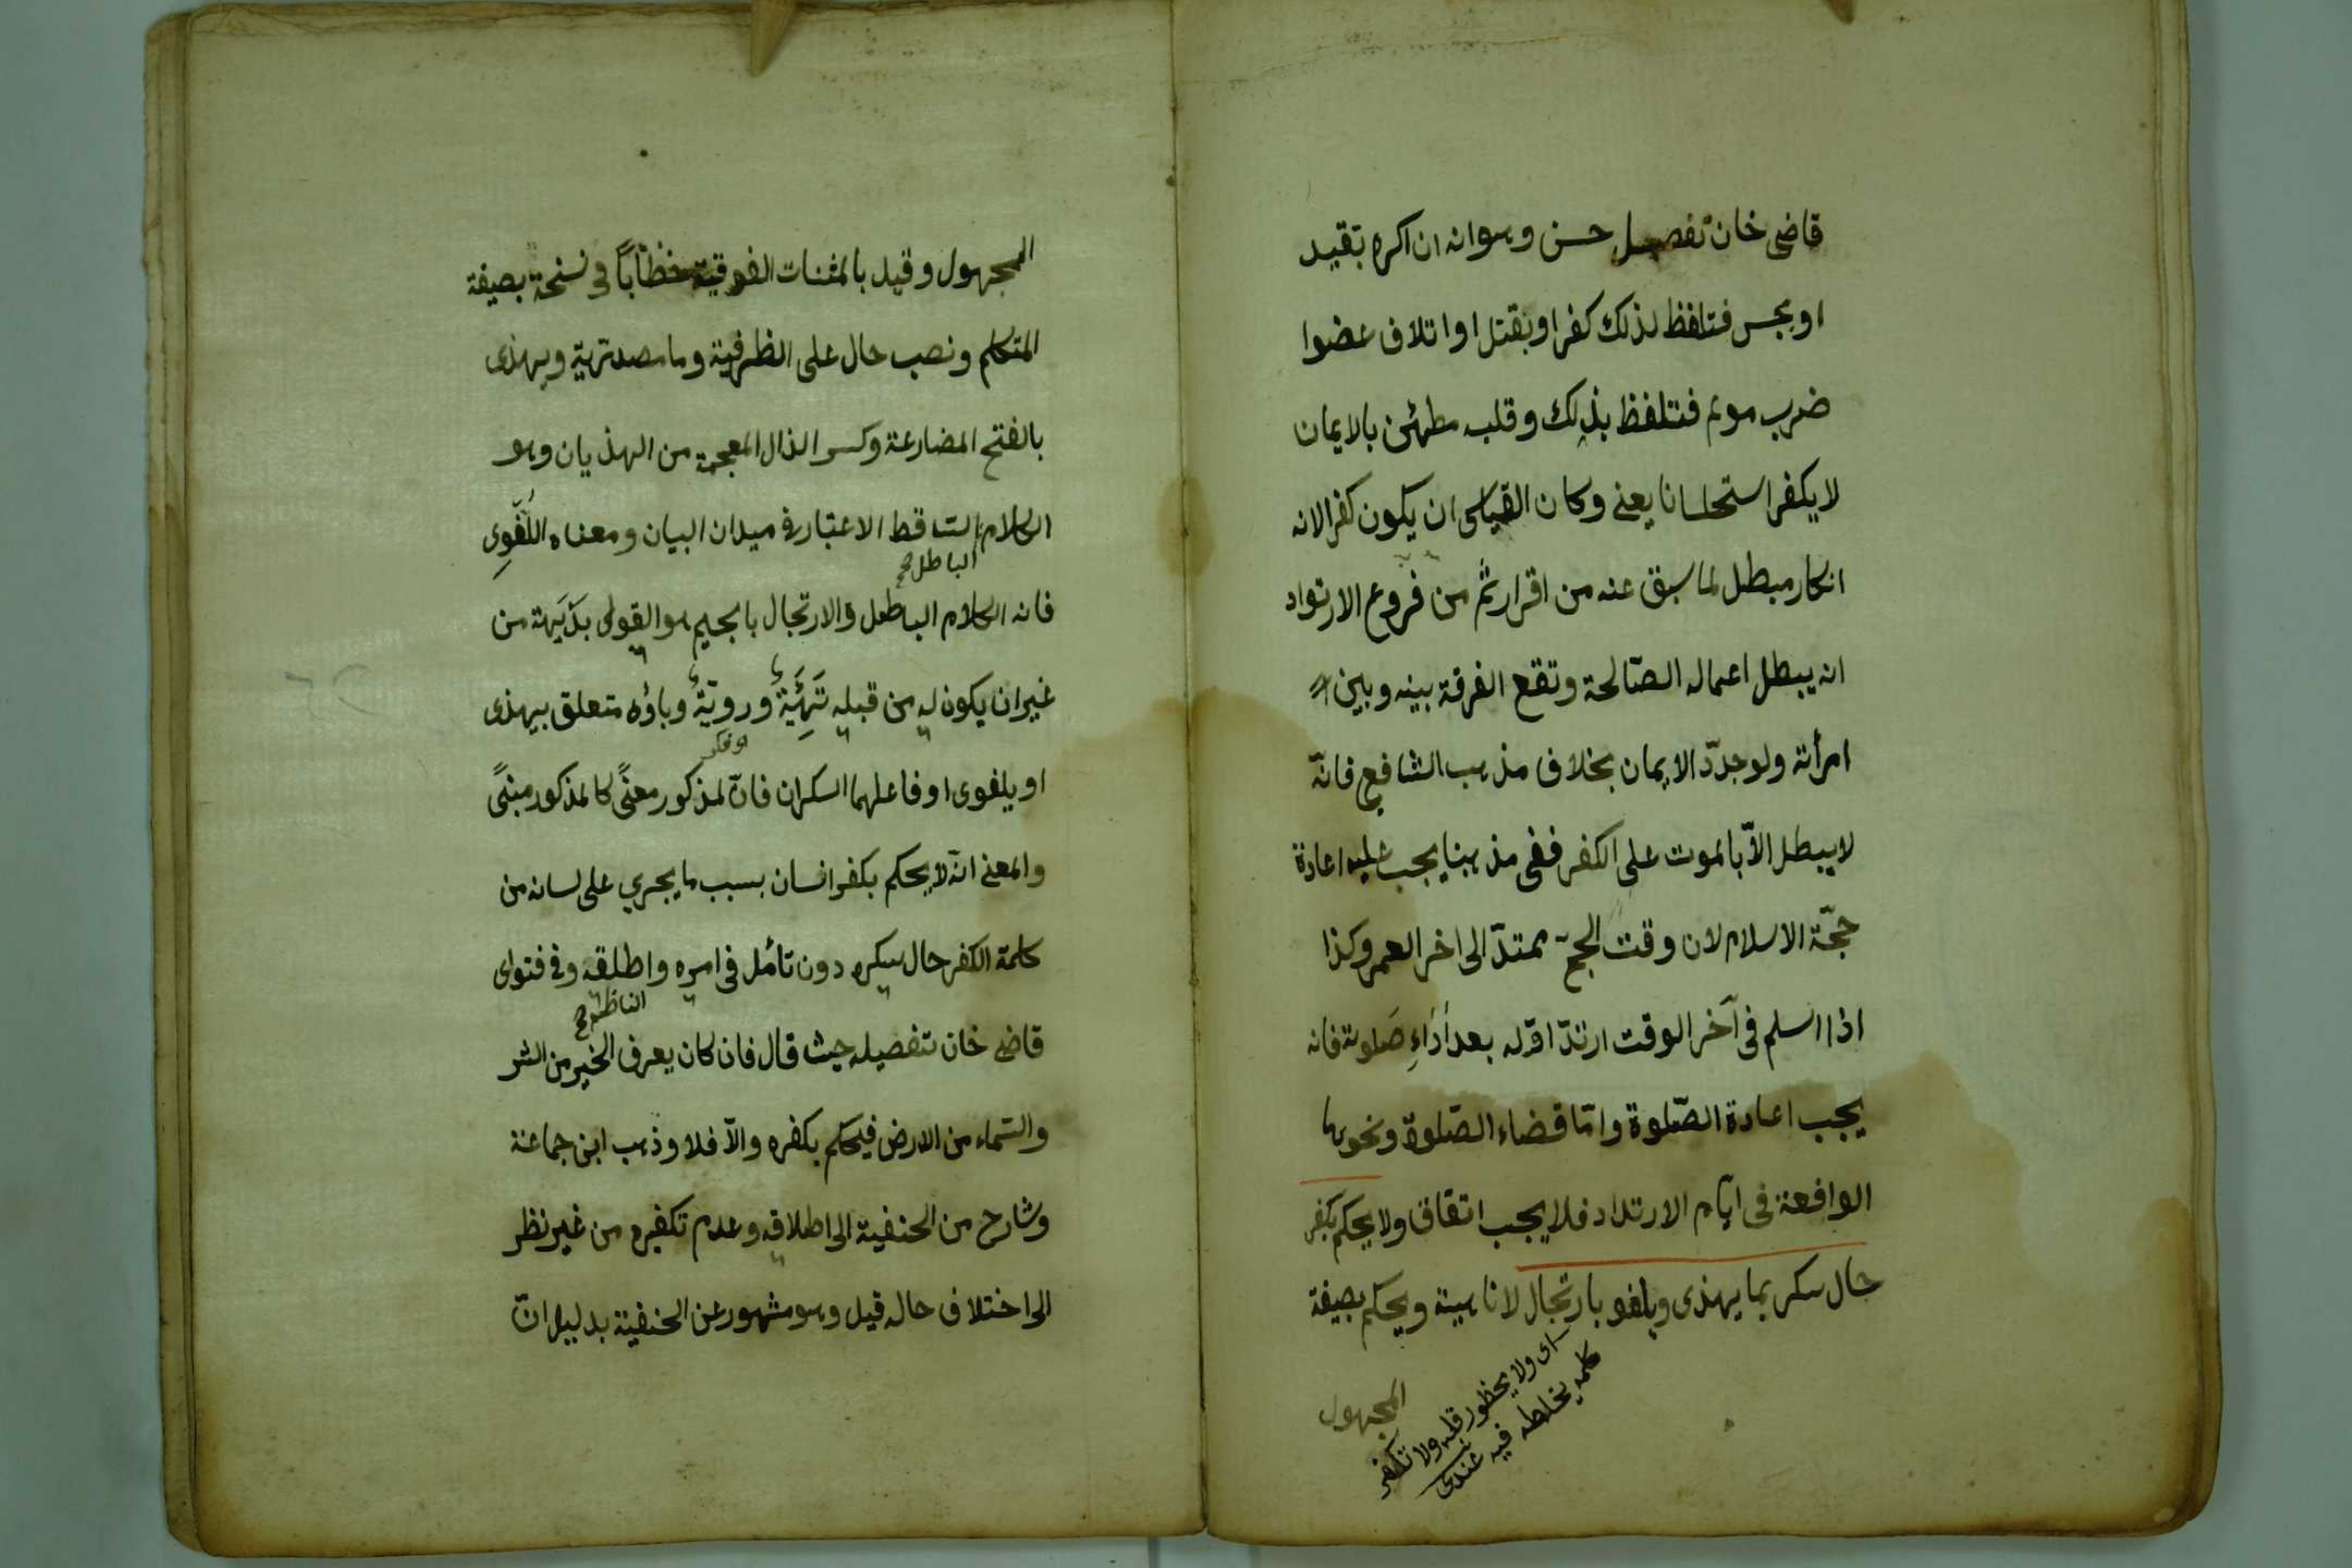 قاضى خان تفصيل حسن وهوانه ان اكره بقيد
او بحبس فتلفظ لذلك كفرا وبقتل او اتلاف عضوا
ضرب مولم فتلفظ بذلك وقلبه مطمئن بالايمان
لا يكفر استحلسانا يعنى وكان القياس ان يكون كفرا لانه
انكار مبطل لما سبق عنه من اقرار ثم من فروع الارتداد
انه يبطل اعماله الصّالحة وتقع الفرقة بينه وبين
امرأته ولو جدّد الايمان بخلاف مذهب الشافع فانّه
لا يبطل الاّ بالموت على الكفر ففى مذهبنا يجب عليه اعادة
حجّة الاسلام لان وقت الحجّ ممتدّ الى اخر العمر وكذا
اذا اسلم فى آخر الوقت ارتدّ اوّله بعد أدَاءِ صَلوته فانه
يجب اعادة الصّلوة وامّا قضاء الصّلوة ونحوها
الواقعة فى ايّام الارتداد فلا يجب اتفاقا ولا يحكم بكفر
حال سكر بما يهذى ويلغو بارتجال لاناهية ويحكم بصيغة
اى ولا يحظور قلبه ولا تكفر
كلمه يخلطه فيه عندى
المجهول
المجهول وقيل بالمثنات الفوقية خطاباً وفى نسخة بصيغة
المتكلم ونصب حال على الظرفية وما مصدترية ويهذى
بالفتح المضارعة وكسر الذال المعجمة من الهذيان وهو
الكلام الساقط الاعتبار فى ميدان البيان ومعناه اللُّغَوِى
الباطل صح
فانه الكلام الباطل والارتجال بالجيم هو القول بَديَهة من
غير ان يكون له من قبله تَهِيَّئَة وروّية وباؤه متعلق بيهذى
او فكر
او يلغوى او فاعلهما السكران فانّ لمذكور معنًى كالمذكور مبنًى
والمعنى انّه لا يحكم بكفر انسان بسبب ما يجري على لسانه من
كلمة الكفر حال سكره دون تأمل فى امره واطلقه وفى فتواى
الناظم صح
قاضى خان تفصيله حيث قال فان كان يعرف الخير من الشر
والسّماء من الارض فيحكم بكفره والاّ فلا وذهب ابن جماعة
وشارح من الحنفية الى اطلاقه وعدم تكفيره من غير نظر
الى اختلاف حاله قيل وهو مشهور عن الحنفية بدليل انّ